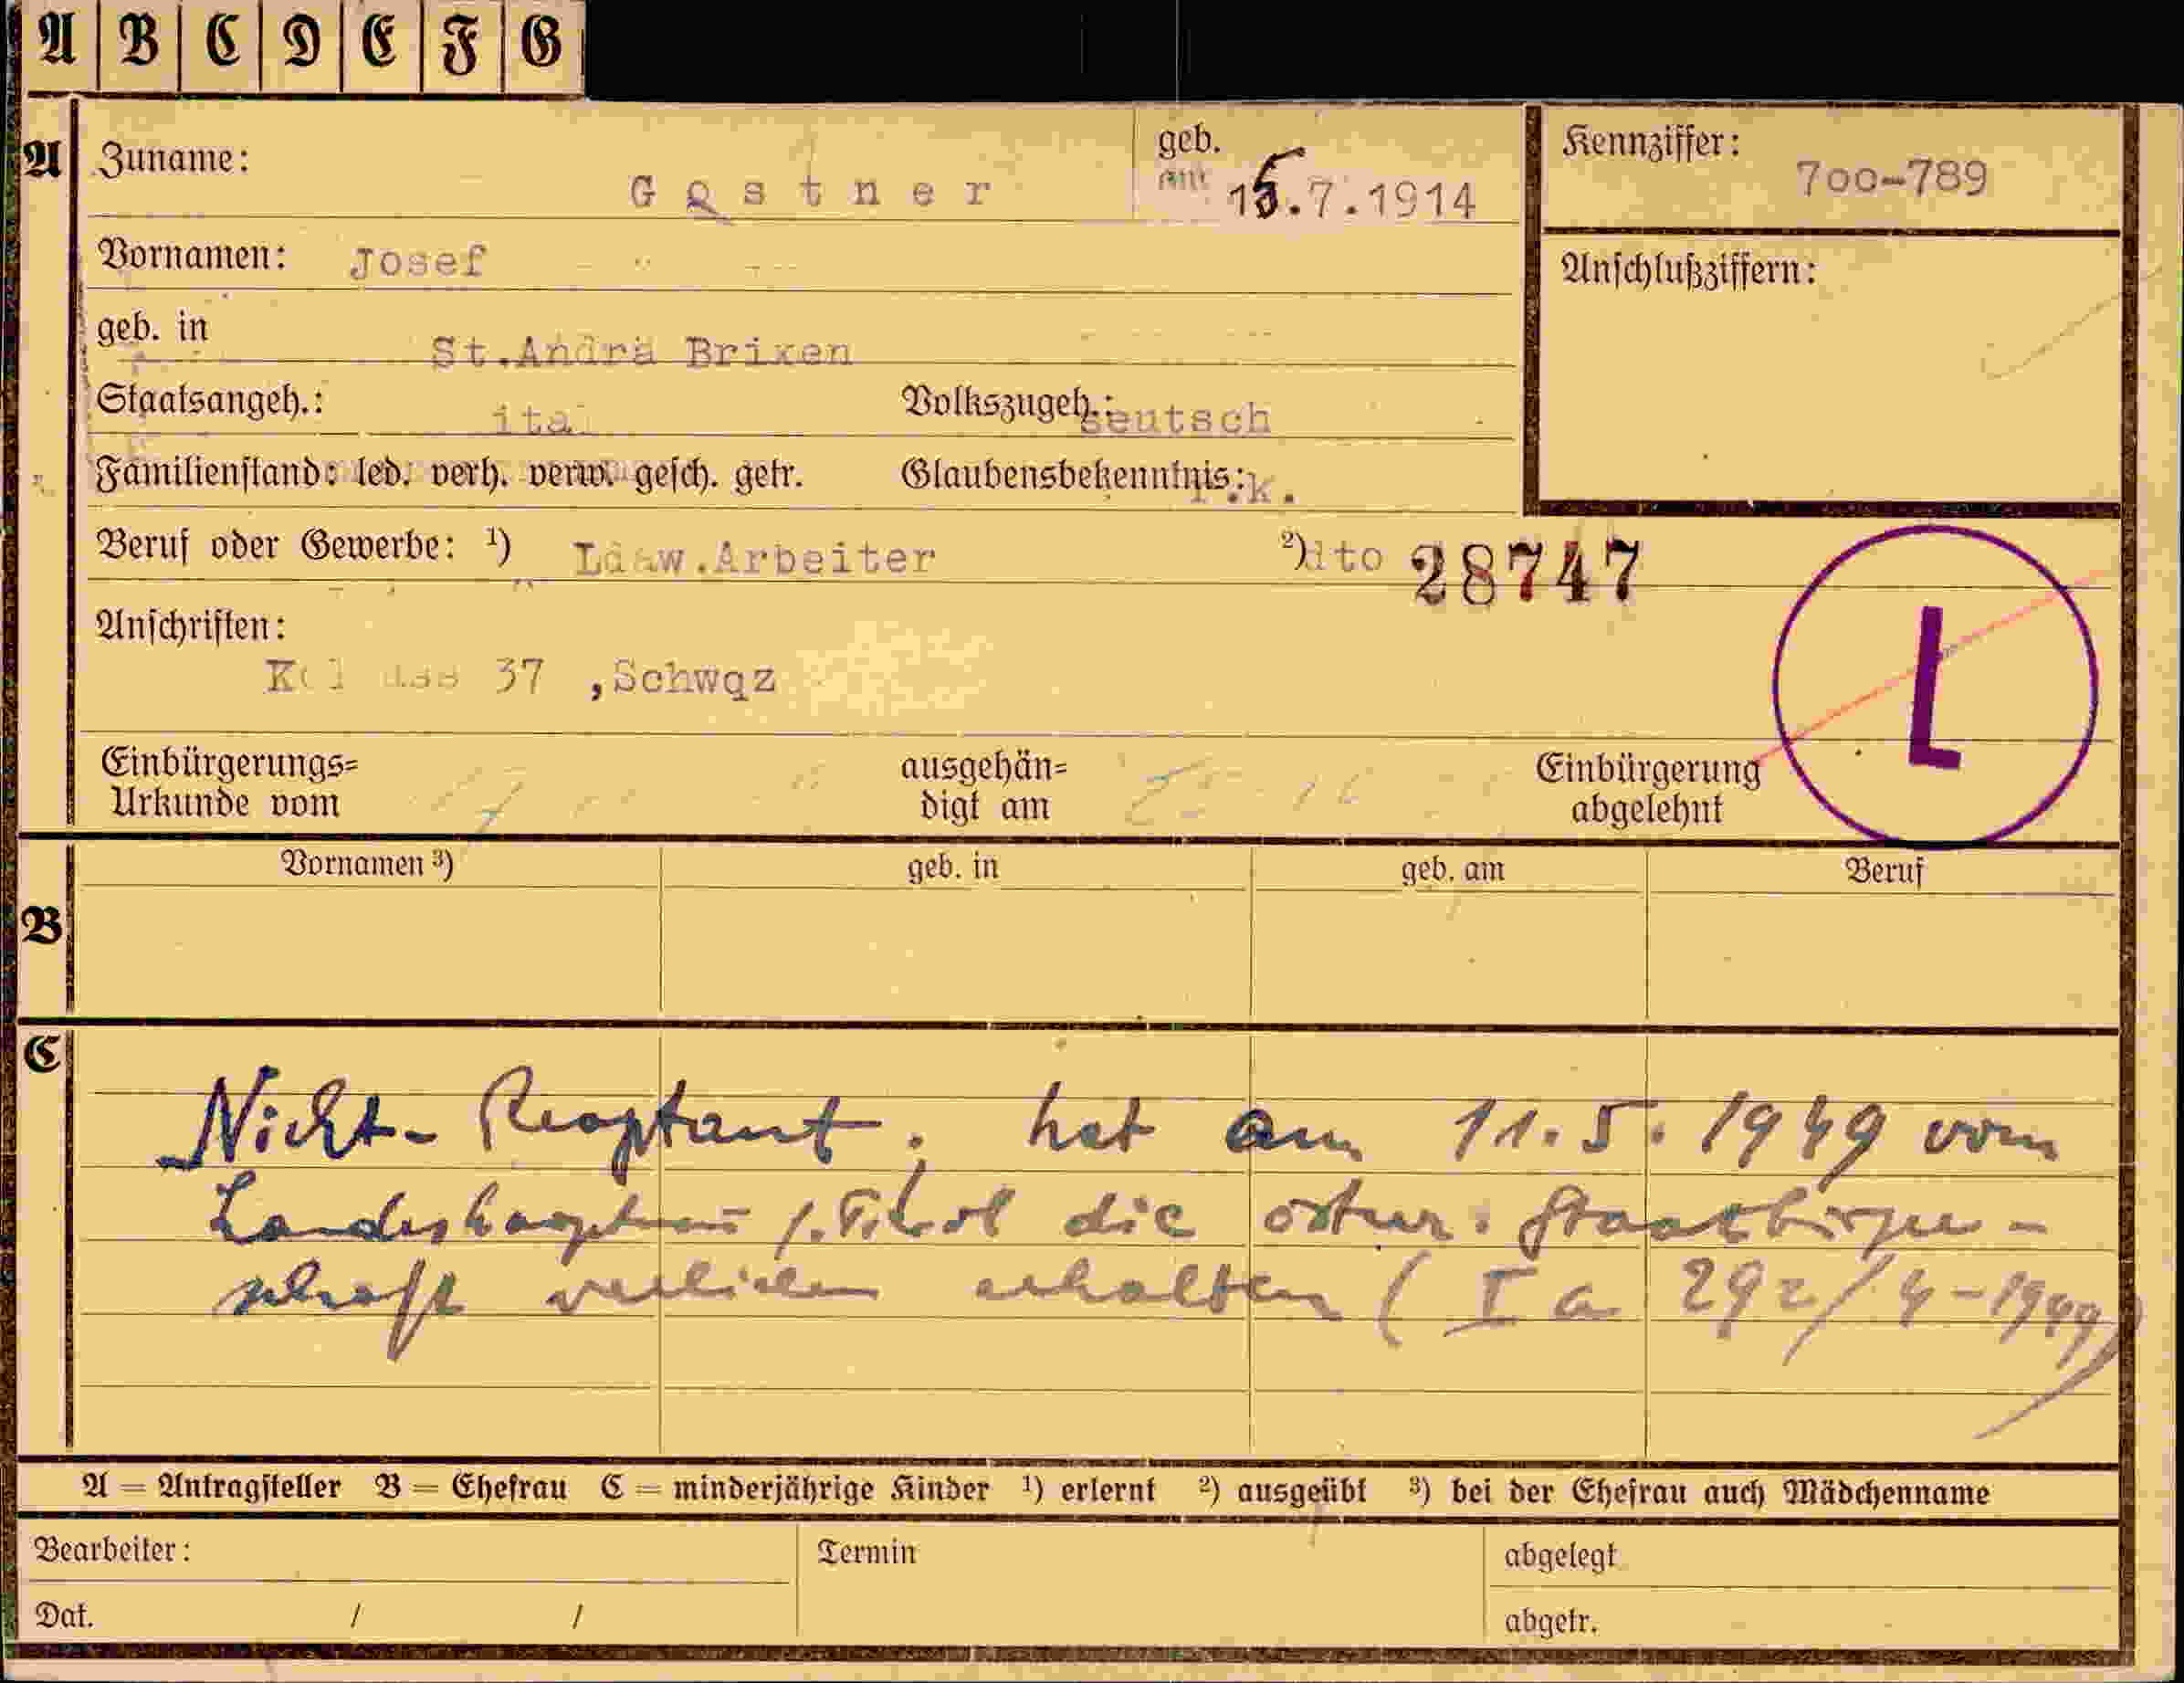 A B C D E F G
A Zuname: Gostner geb. am 15.7.1914 Kennziffer: 7oo-789
Vornamen: Josef Anschlußziffern:
geb. in St.Andrä Brixen
Staatsangeh.: ital Volkszugeh.: deutsch
Familienstand: led. verh. verw. gesch. getr. Glaubensbekenntnis: r.k.
Beruf oder Gewerbe: ¹) Ldw.Arbeiter ²) dto 28747
Anschriften:
37 ,Schwqz L
Einbürgerungs=
Urkunde vom
ausgehän=
digt am
Einbürgerung
abgelehnt
Vornamen ³) geb. in geb. am Beruf
B
C
Nicht-Reoptant. hat am 11.5.1949 vom
Landeshauptm f. Tirol die österr. Staatsbürger-
schaft verliehen erhalten (Ia 292/4-1949)
A = Antragsteller B = Ehefrau C = minderjährige Kinder ¹) erlernt ²) ausgeübt ³) bei der Ehefrau auch Mädchenname
Bearbeiter: Termin abgelegt
Dat. / / abgetr.